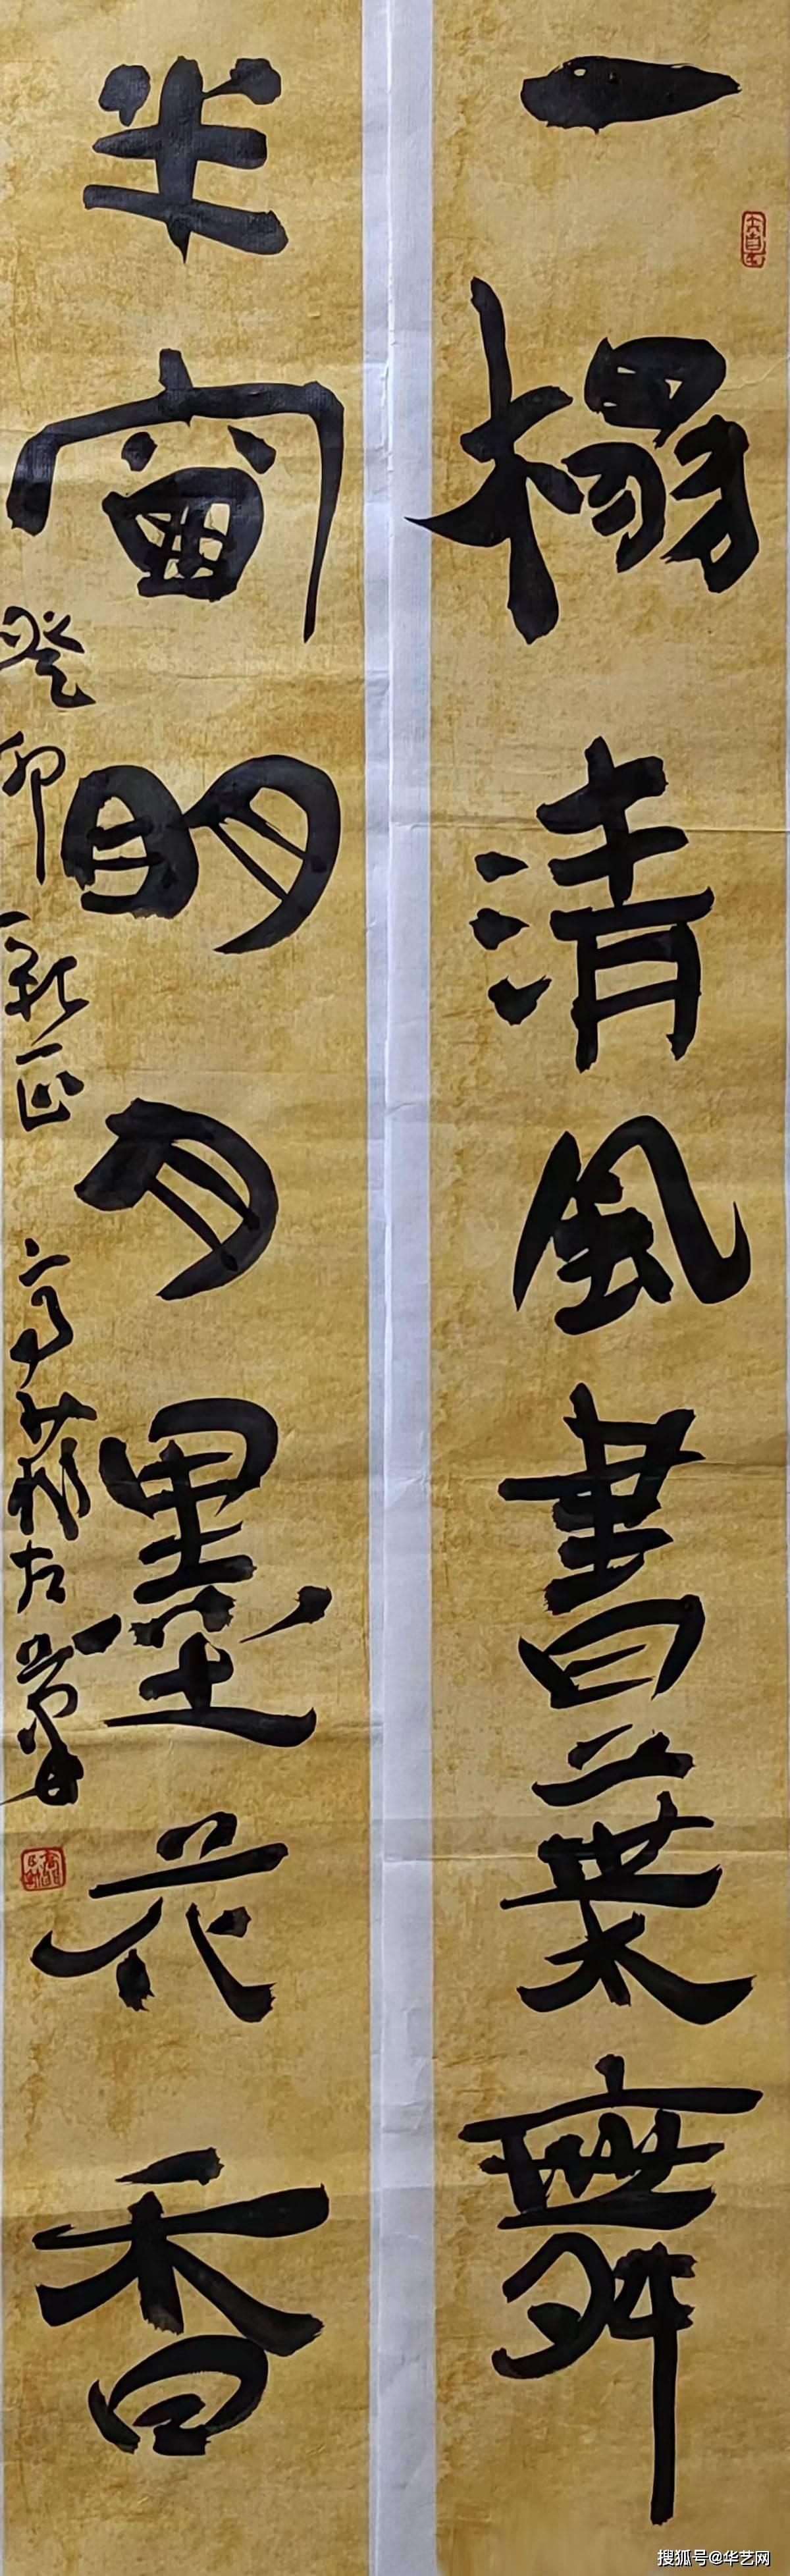 一榻清風書葉舞
半窗明月墨花香
癸卯新正
搜狐号@华艺网